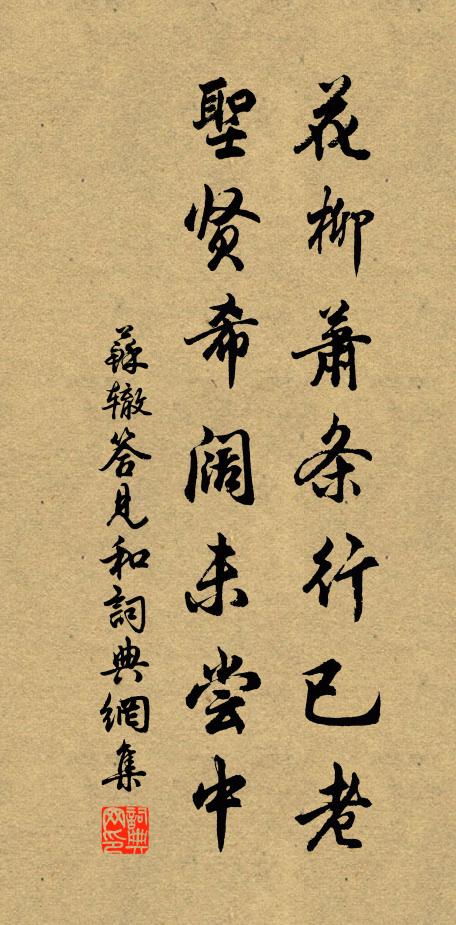 花柳蕭条行已老
聖贤希阔未尝中
蘇辙答見和詞典網集
詞典网印